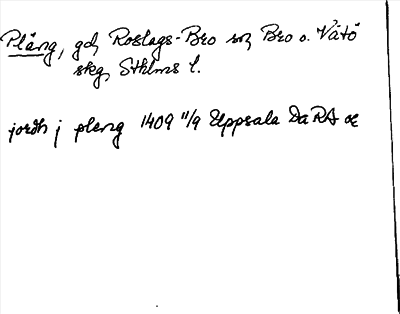 Pläng, gd, Roslags-Bro sn, Bro o. Vätö
skg, Sthlms l.
jordh j pleng 1409 11/9 Uppsala Da RA or